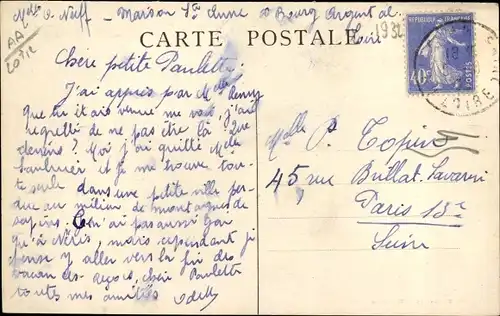 Maison Ste Anne Bourg Argental
Loire
AA
LOIRE
1932
CARTE POSTALE
REPUBLIQUE FRANÇAISE
40c
POSTES
LOIRE
Chère petite Paulette,
J'ai appris par Melle
que tu étais venue me voir, j'ai
regretté de ne pas être là. Que
deviens ? Moi j'ai quitté Melle
et je me trouve tou-
te seule dans une petite ville per-
due au milieu de montagnes de
sapins. C'en'ai pas aussi gai
qu'à Néris, mais cependant j'
pense y aller vers la fin des
vacan es. Reçois, chère Paulette
toutes mes amitiés Odette
Melle P. Topin
45 rue Brillat-Savarin
Paris 13e
Seine